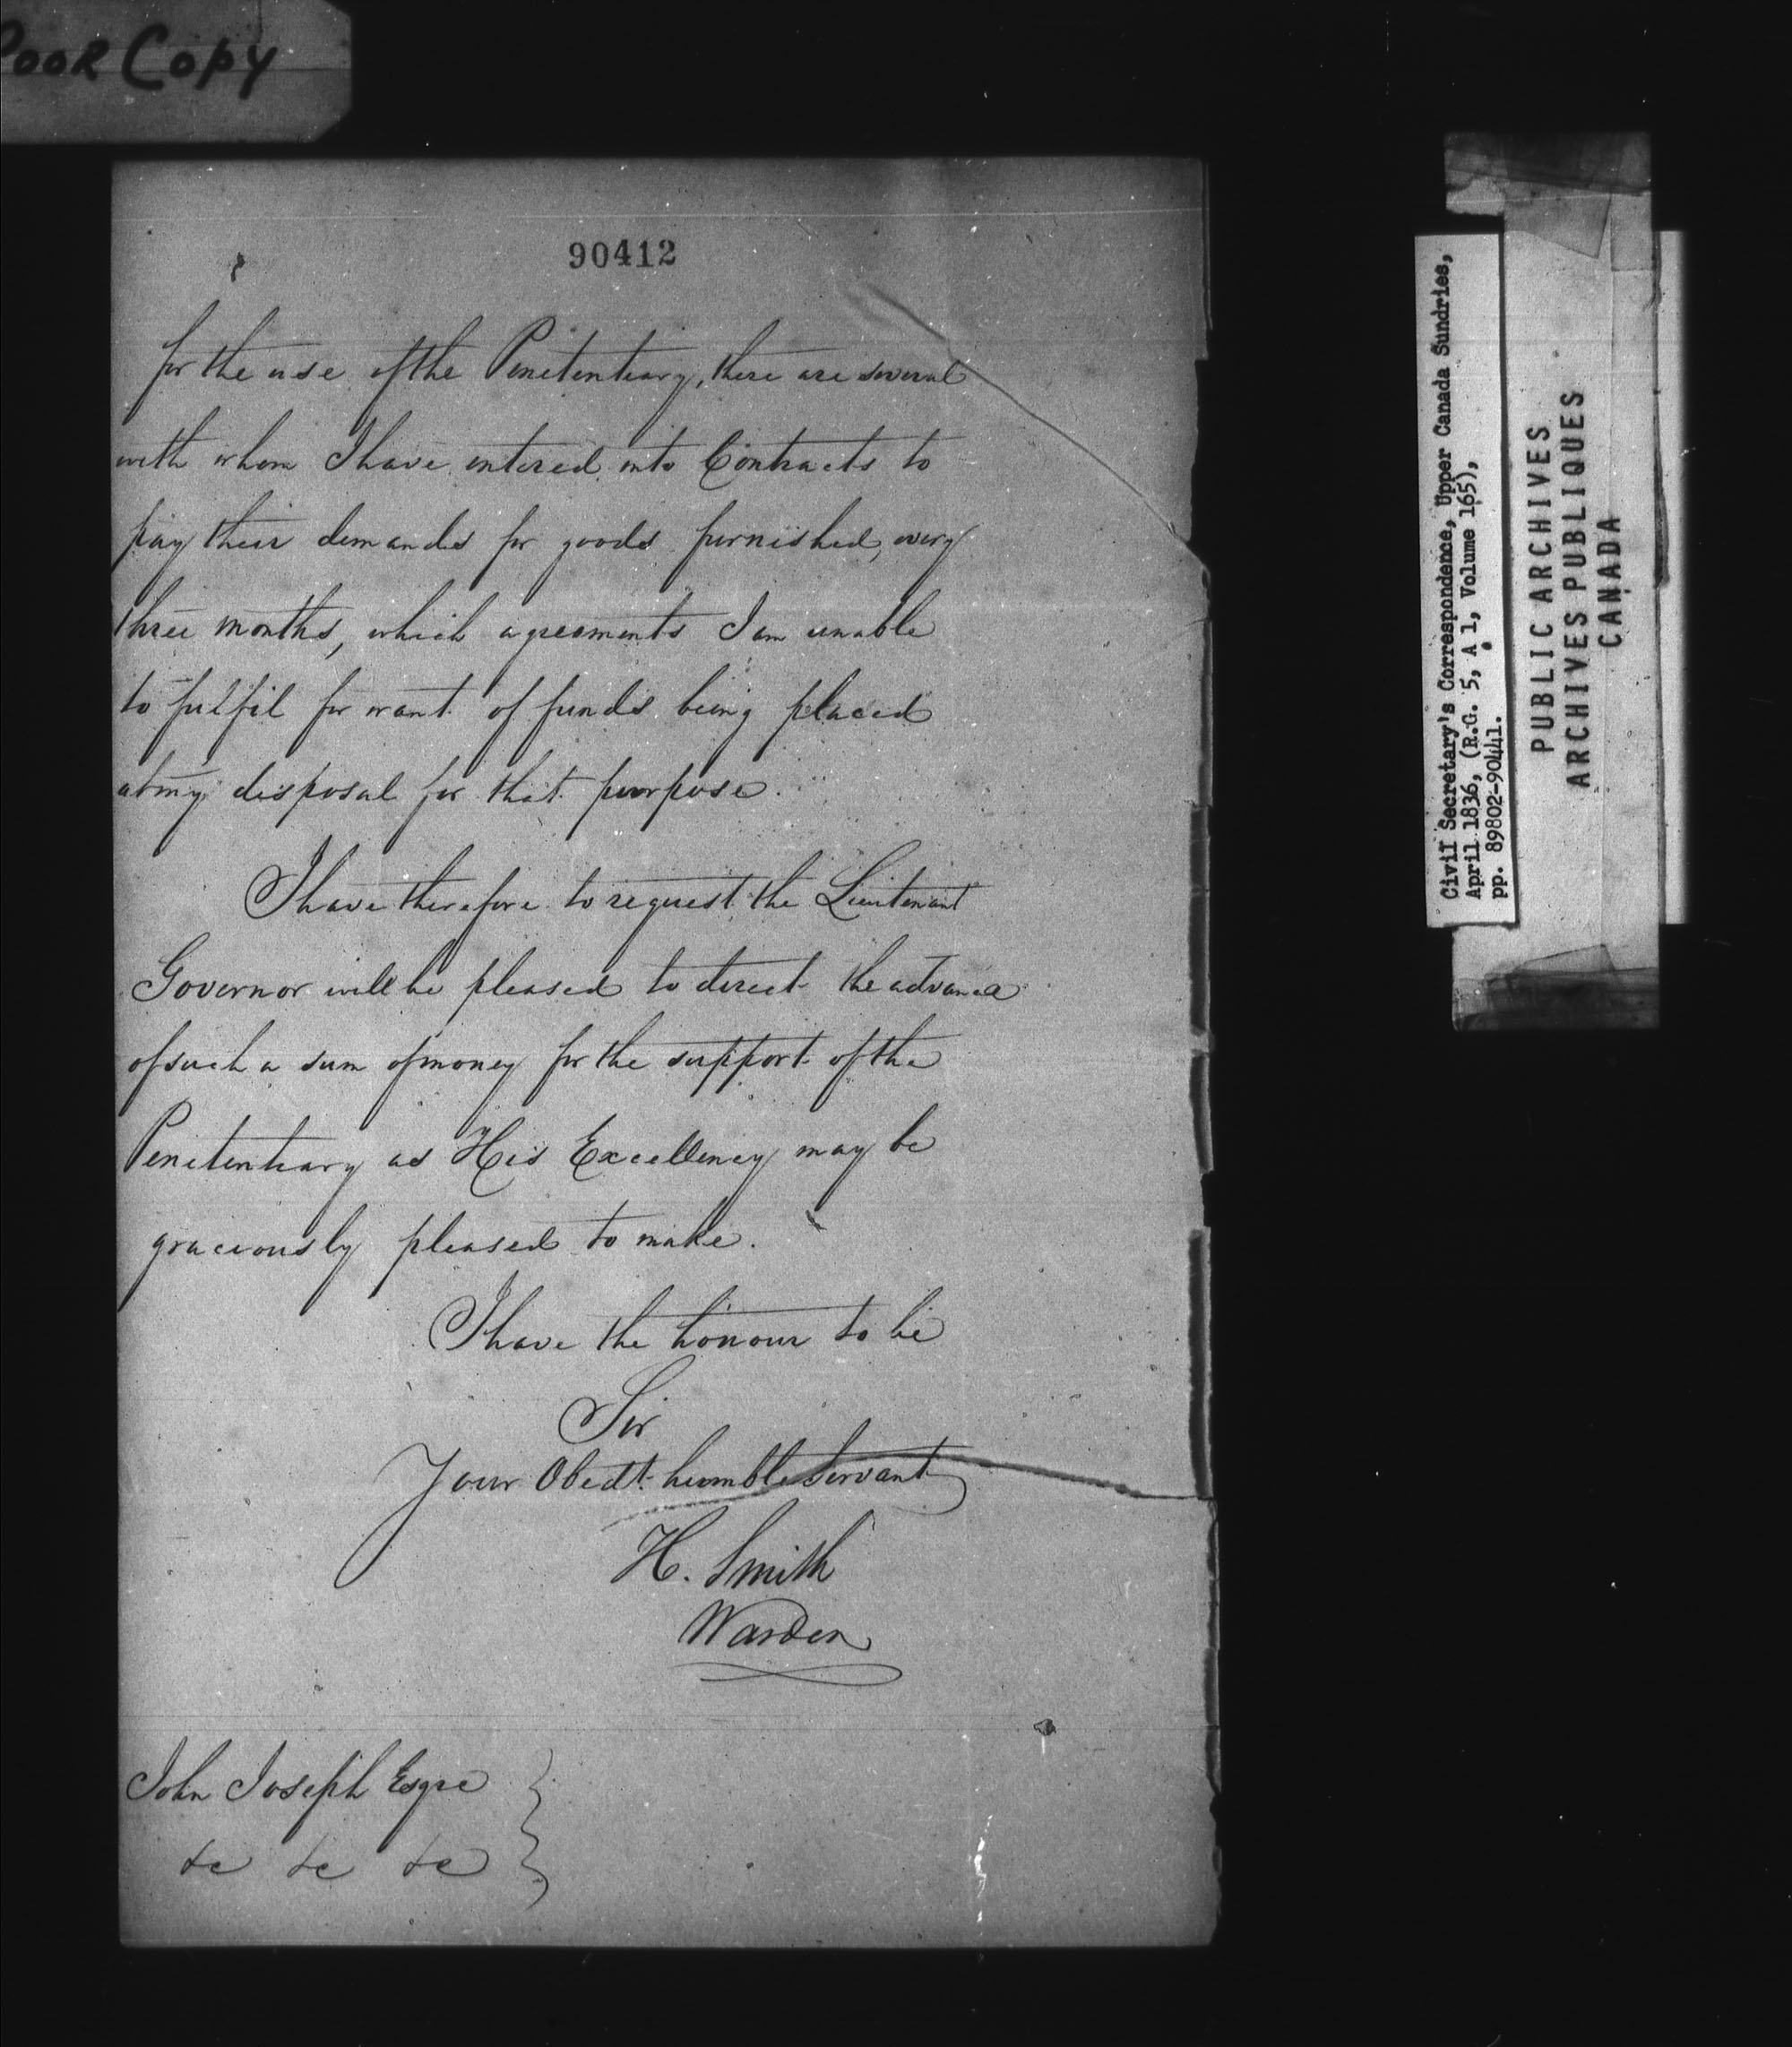 POOR COPY
90412
for the use of the Penetentiary, there are several
with whom I have entered into Contracts to
pay their demands for goods furnished, every
three months, which agreements I am unable
to fulfil for want of funds being placed
at my disposal for that purpose.
I have therefore to request the Lieutenant
Governor will be pleased to direct the advance
of such a sum of money for the support of the
Penetentiary as His Excellency may be
graciously pleased to make.
I have the honour to be
Sir
Your Obedt. humble Servant
H. Smith
Warden
John Joseph Esqre
&c &c &c
Civil Secretary's Correspondence, Upper Canada Sundries,
April 1836, (R.G. 5, A 1, Volume 165),
pp. 89802-90441.
PUBLIC ARCHIVES
ARCHIVES PUBLIQUES
CANADA